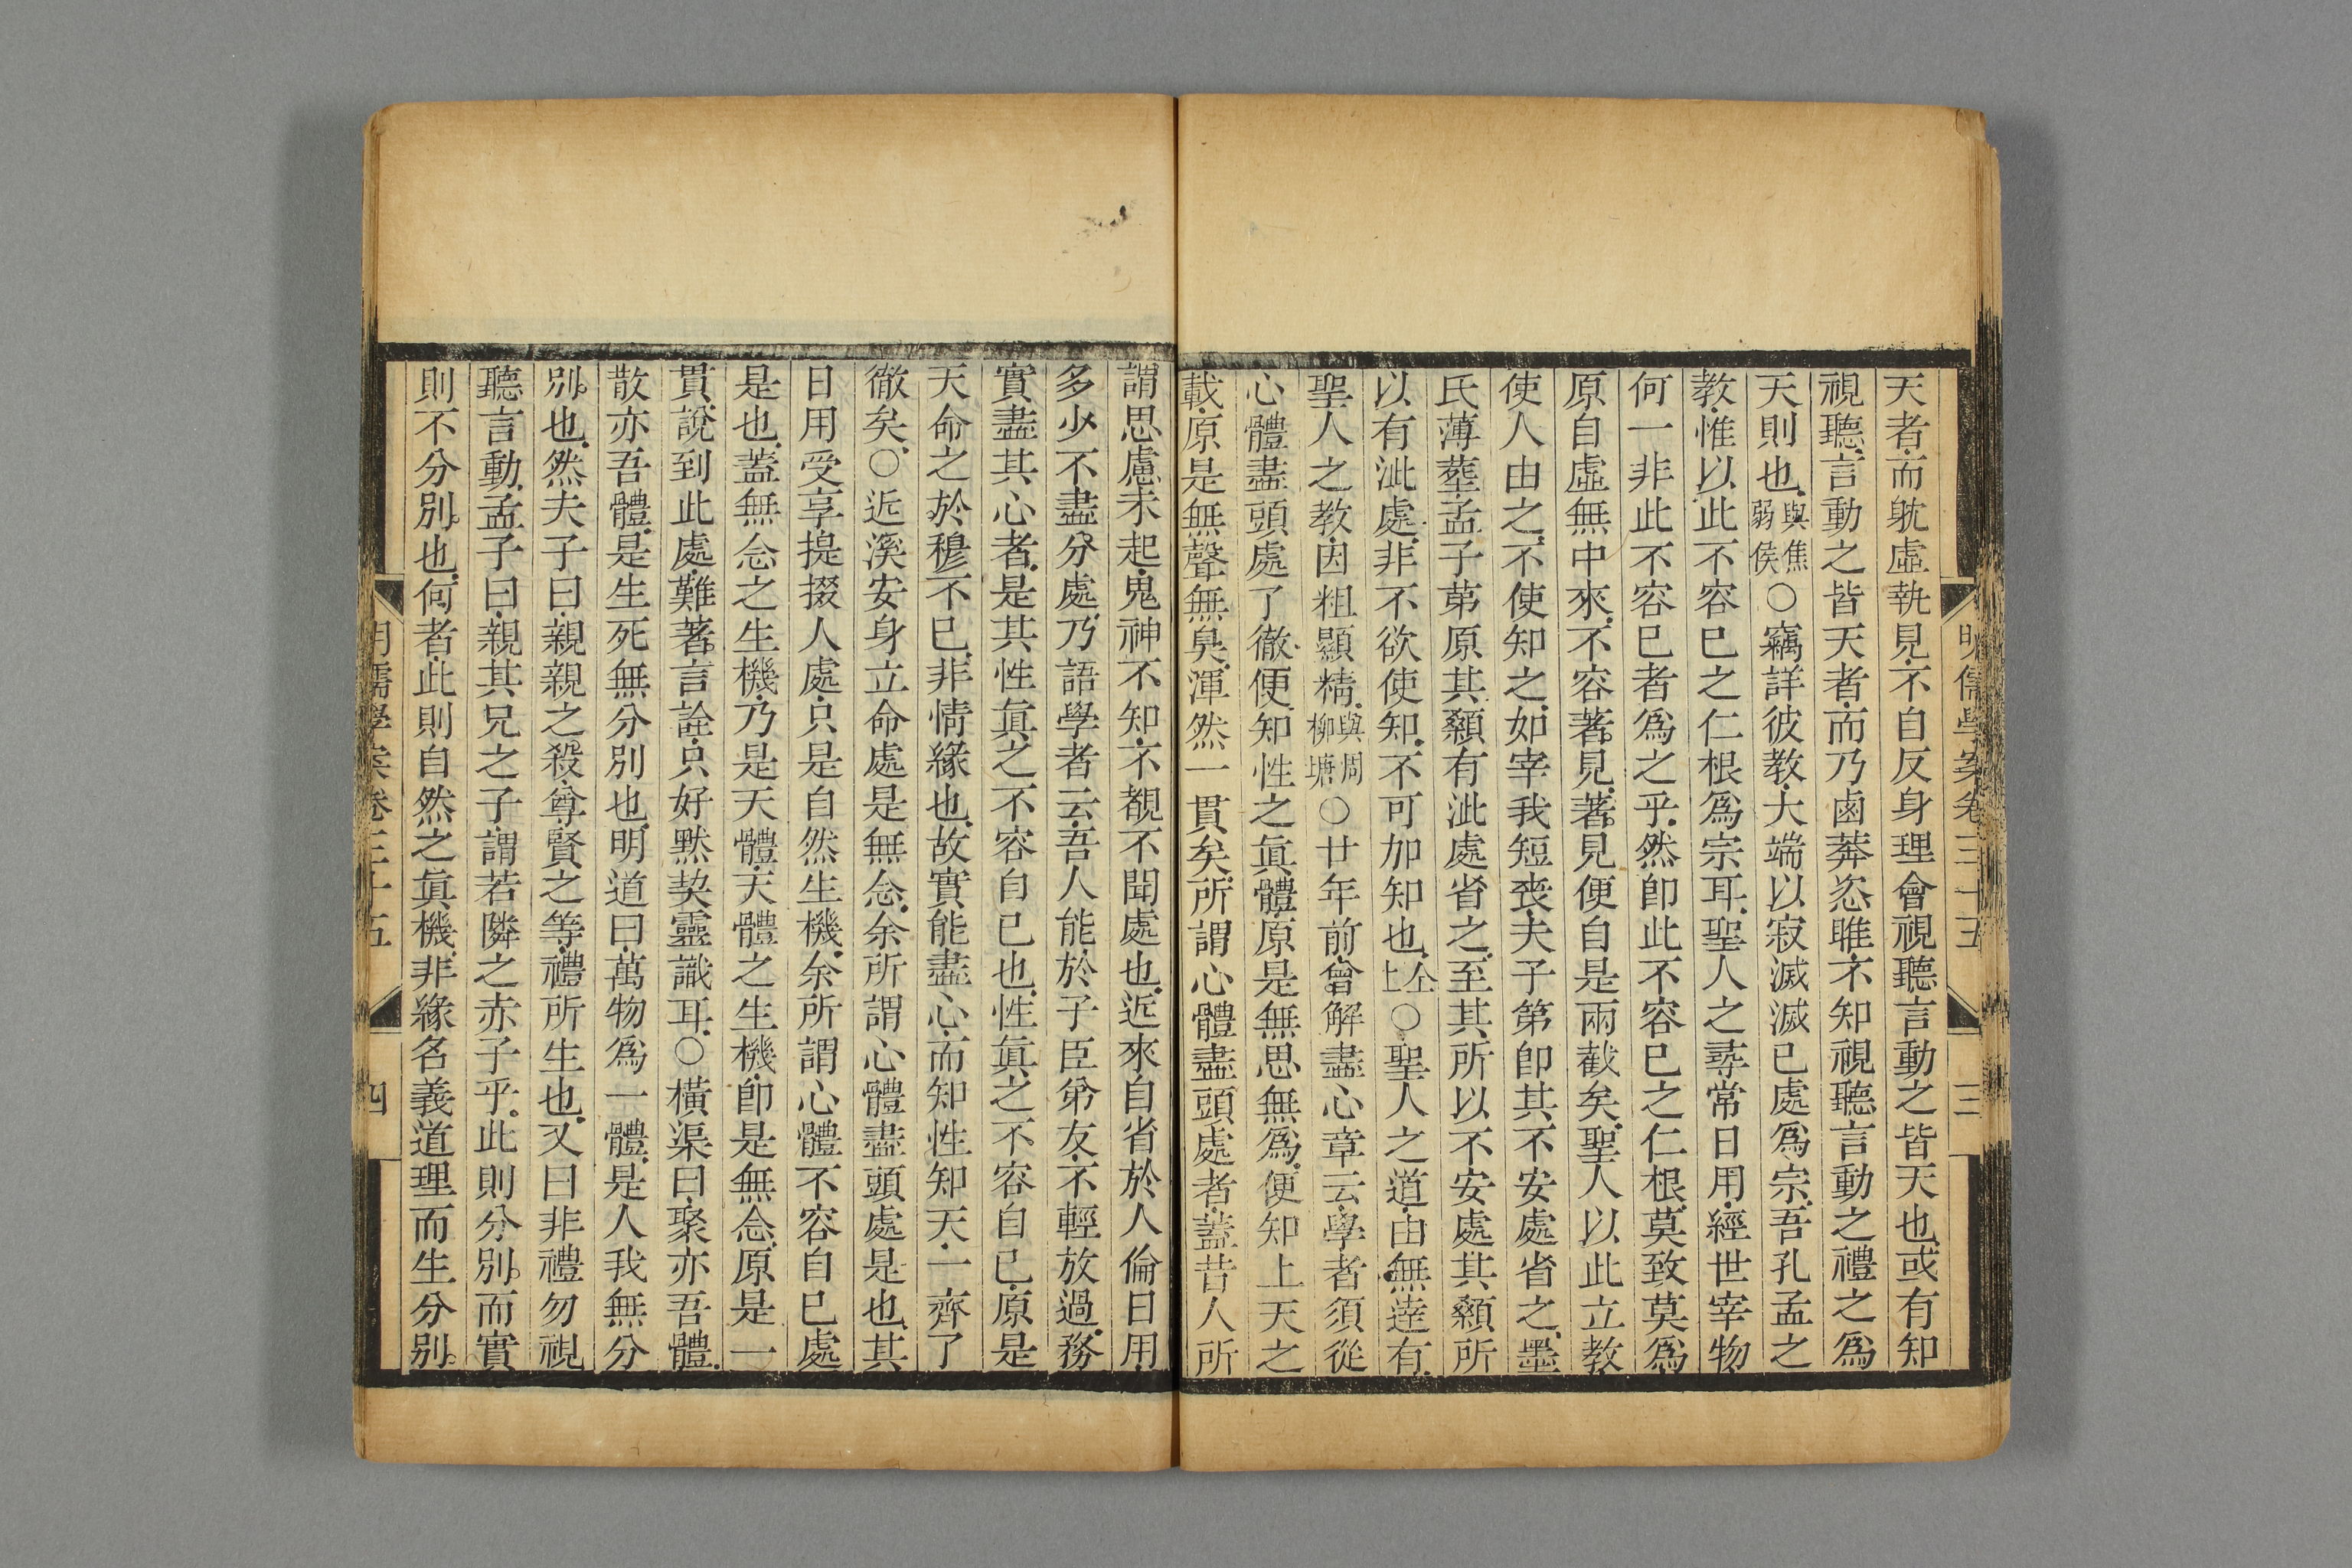 天者而躭虛執見不自反身理會視聽言動之皆天也或有知
視聽言動之皆天者而乃鹵莽恣睢不知視聽言動之禮之爲
天則也與焦弱侯○竊詳彼教大端以寂滅滅已處爲宗吾孔孟之
教惟以此不容已之仁根爲宗耳聖人之尋常日用經世宰物
何一非此不容已者爲之乎然卽此不容已之仁根莫致莫爲
原自虛無中來不容著見著見便自是兩截矣聖人以此立教
使人由之不使知之如宰我短喪夫子第卽其不安處省之墨
氏薄葬孟子第原其顙有泚處省之至其所以不安處其顙所
以有泚處非不欲使知不可加知也仝上○聖人之道由無達有
聖人之教因粗顯精與周柳塘○廿年前曾解盡心章云學者須從
心體盡頭處了徹便知性之眞體原是無思無爲便知上天之
載原是無聲無臭渾然一貫矣所謂心體盡頭處者蓋昔人所
謂思慮未起鬼神不知不覩不聞處也近來自省於人倫日用
多少不盡分處乃語學者云吾人能於子臣弟友不輕放過務
實盡其心者是其性眞之不容自已也性眞之不容自已原是
天命之於穆不已非情緣也故實能盡心而知性知天一齊了
徹矣○近溪安身立命處是無念余所謂心體盡頭處是也其
日用受享提掇人處只是自然生機余所謂心體不容自已處
是也蓋無念之生機乃是天體天體之生機卽是無念原是一
貫說到此處難著言詮只好默契靈識耳○橫渠曰聚亦吾體
散亦吾體是生死無分別也明道曰萬物爲一體是人我無分
別也然夫子曰親親之殺尊賢之等禮所生也又曰非禮勿視
聽言動孟子曰親其兄之子謂若隣之赤子乎此則分別而實
則不分別也何者此則自然之眞機非緣名義道理而生分別
明儒學案卷三十五
三
明儒學案卷三十五
四